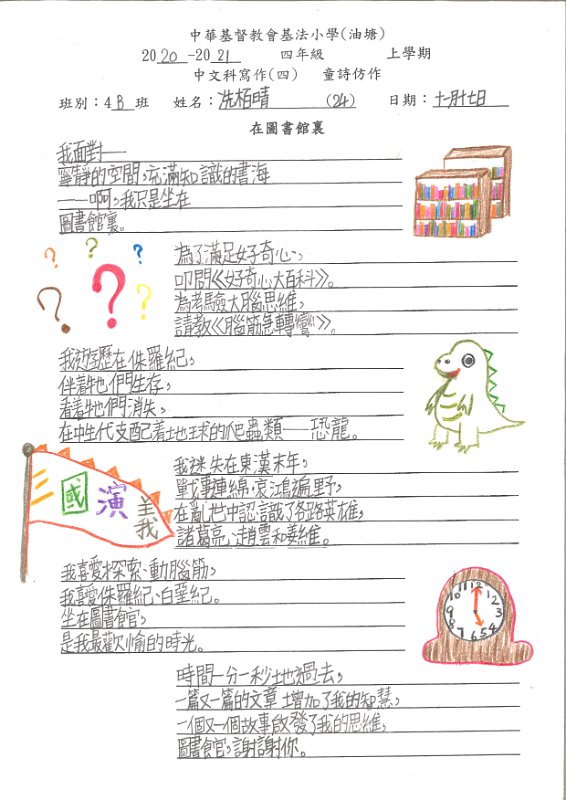 中華基督教會基法小學(油塘)
2020-2021 四年級 上學期
中文科寫作(四) 童詩仿作
班別：4B班 姓名：冼栢晴 (24) 日期：十一月十七日
在圖書館裏
我面對——
寧靜的空間，充滿知識的書海
——啊，我只是坐在
圖書館裏。
為了滿足好奇心，
叩問《好奇心大百科》。
為考驗大腦思維，
請教《腦筋急轉彎》。
我遊歷在侏羅紀，
伴着牠們生存，
看着牠們消失，
在中生代支配着地球的爬蟲類——恐龍。
三國演義
我迷失在東漢末年，
戰事連綿，哀鴻遍野，
在亂世中認識了各路英雄，
諸葛亮、趙雲和姜維。
我喜愛探索、動腦筋，
我喜愛侏羅紀、白堊紀。
坐在圖書館，
是我最歡愉的時光。
時間一分一秒地過去，
一篇又一篇的文章增加了我的智慧，
一個又一個故事啟發了我的思維，
圖書館，謝謝你。